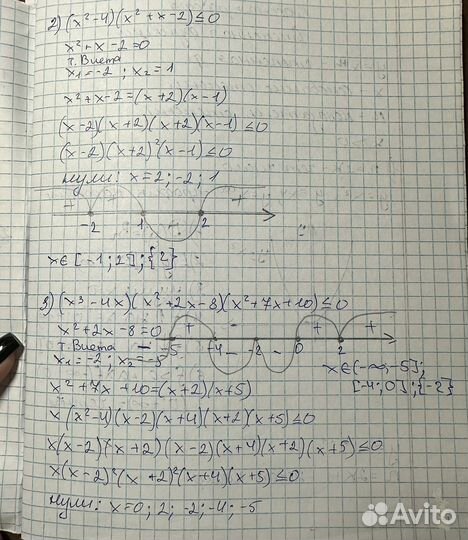 2) (x²-4)(x²+x-2)≤0
x²+x-2=0
т. Виета
x₁=-2; x₂=1
x²+x-2=(x+2)(x-1)
(x-2)(x+2)(x+2)(x-1)≤0
(x-2)(x+2)²(x-1)≤0
нули: x=2; -2; 1
+ + - +
-2 1 2
x∈[-1; 2]; {2}
3) (x³-4x)(x²+2x-8)(x²+7x+10)≤0
x²+2x-8=0
т. Виета
x₁=-2; x₂=-5
- + - - + +
-5 -4 -2 0 2
x∈(-∞; -5];
[-4; 0]; {-2}
x²+7x+10=(x+2)(x+5)
x(x²-4)(x-2)(x+4)(x+2)(x+5)≤0
x(x-2)(x+2)(x-2)(x+4)(x+2)(x+5)≤0
x(x-2)²(x+2)²(x+4)(x+5)≤0
нули: x=0; 2; -2; -4; -5
Avito